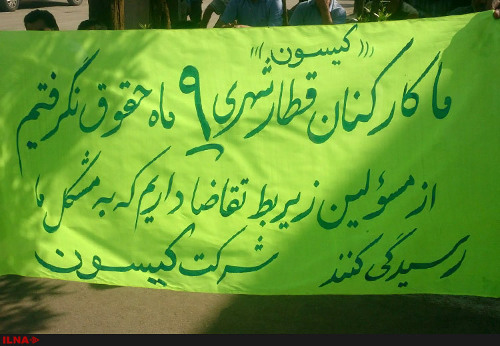 (((کیسون)))
ما کارکنان قطار شهری ۹ ماه حقوق نگرفتیم
از مسؤلین زیربط تقاضا داریم که به مشکل ما
رسیدگی کنند شرکت کیسون
ILNA